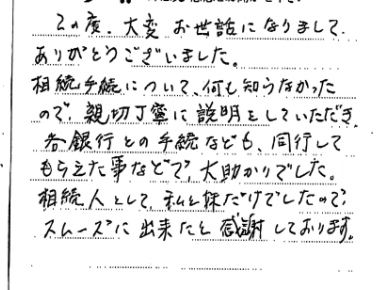 この度、大変お世話になりまして、
ありがとうございました。
相続手続について、何も知らなかった
ので、親切丁寧に説明をしていただき、
各銀行との手続なども、同行して
もらえた事などで、大助かりでした。
相続人として、私と妹だけでしたので、
スムーズに出来たと感謝しております。